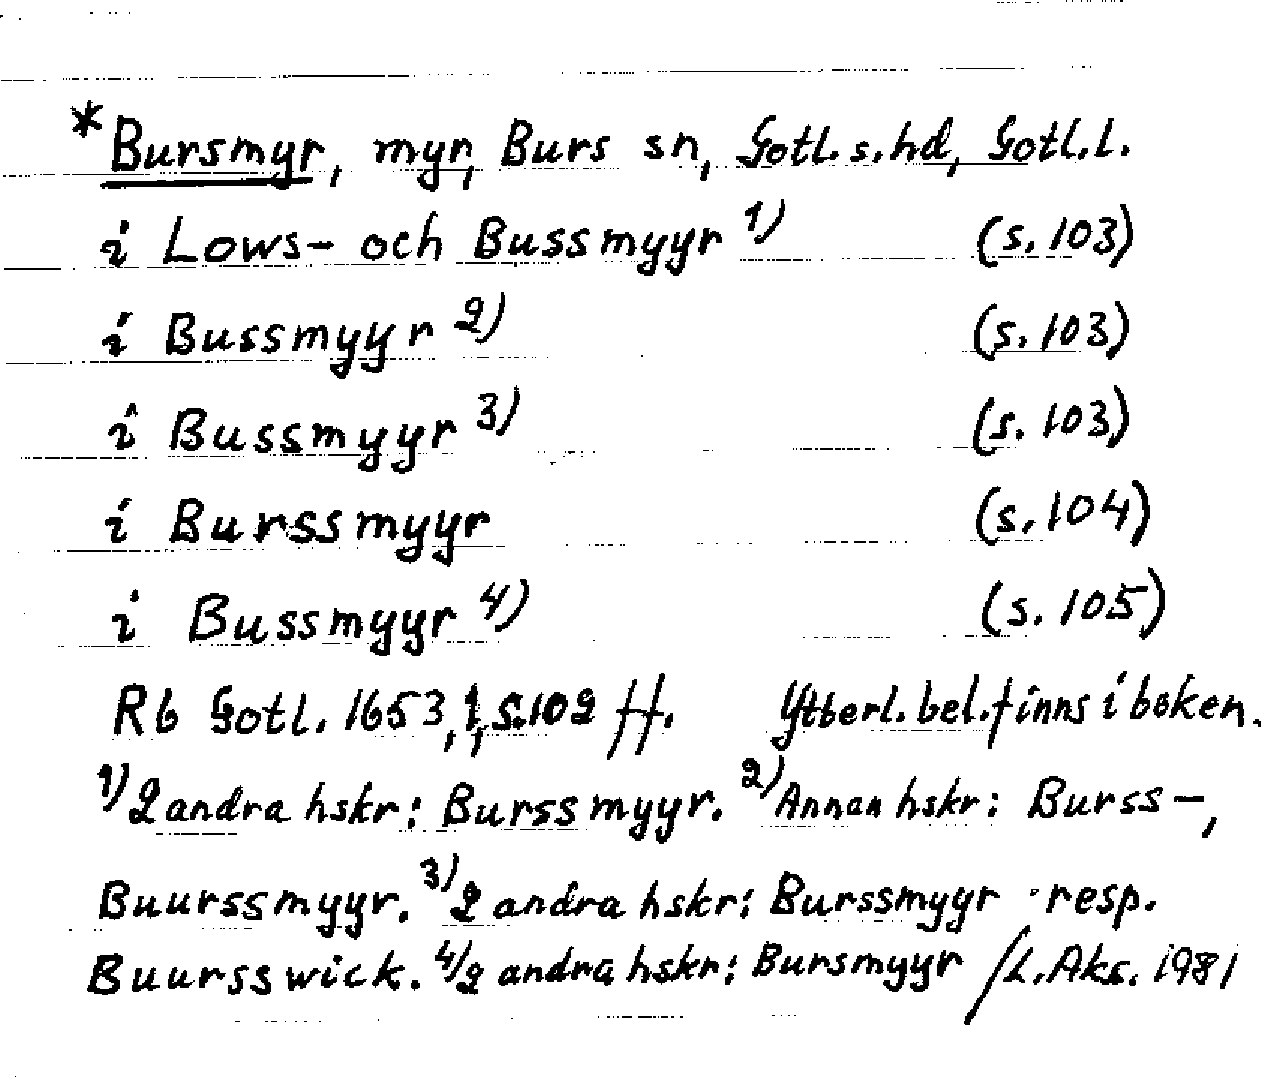 *Bursmyr, myr, Burs sn, Gotl. s. hd, Gotl. l.
i Lows- och Bussmyyr 1) (s. 103)
i Bussmyyr 2) (s. 103)
i Bussmyyr 3) (s. 103)
i Burssmyyr (s. 104)
i Bussmyyr 4) (s. 105)
Rb Gotl. 1653, 1, s. 102 ff. Ytterl. bel. finns i boken.
1) 2 andra hskr: Burssmyyr. 2) Annan hskr: Burss-,
Buurssmyyr. 3) 2 andra hskr: Burssmyyr resp.
Buursswick. 4) 2 andra hskr: Bursmyyr /L. Aks. 1981